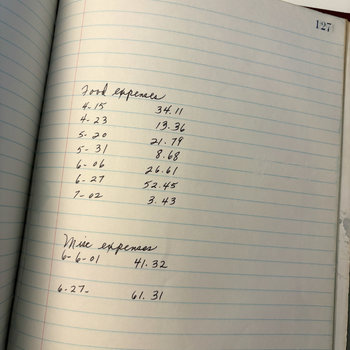 127
Food expenses
4-15 34.11
4-23 13.36
5-20 21.79
5-31 8.68
6-06 26.61
6-27 52.45
7-02 3.43
Misc expenses
6-6-01 41.32
6-27- 61.31